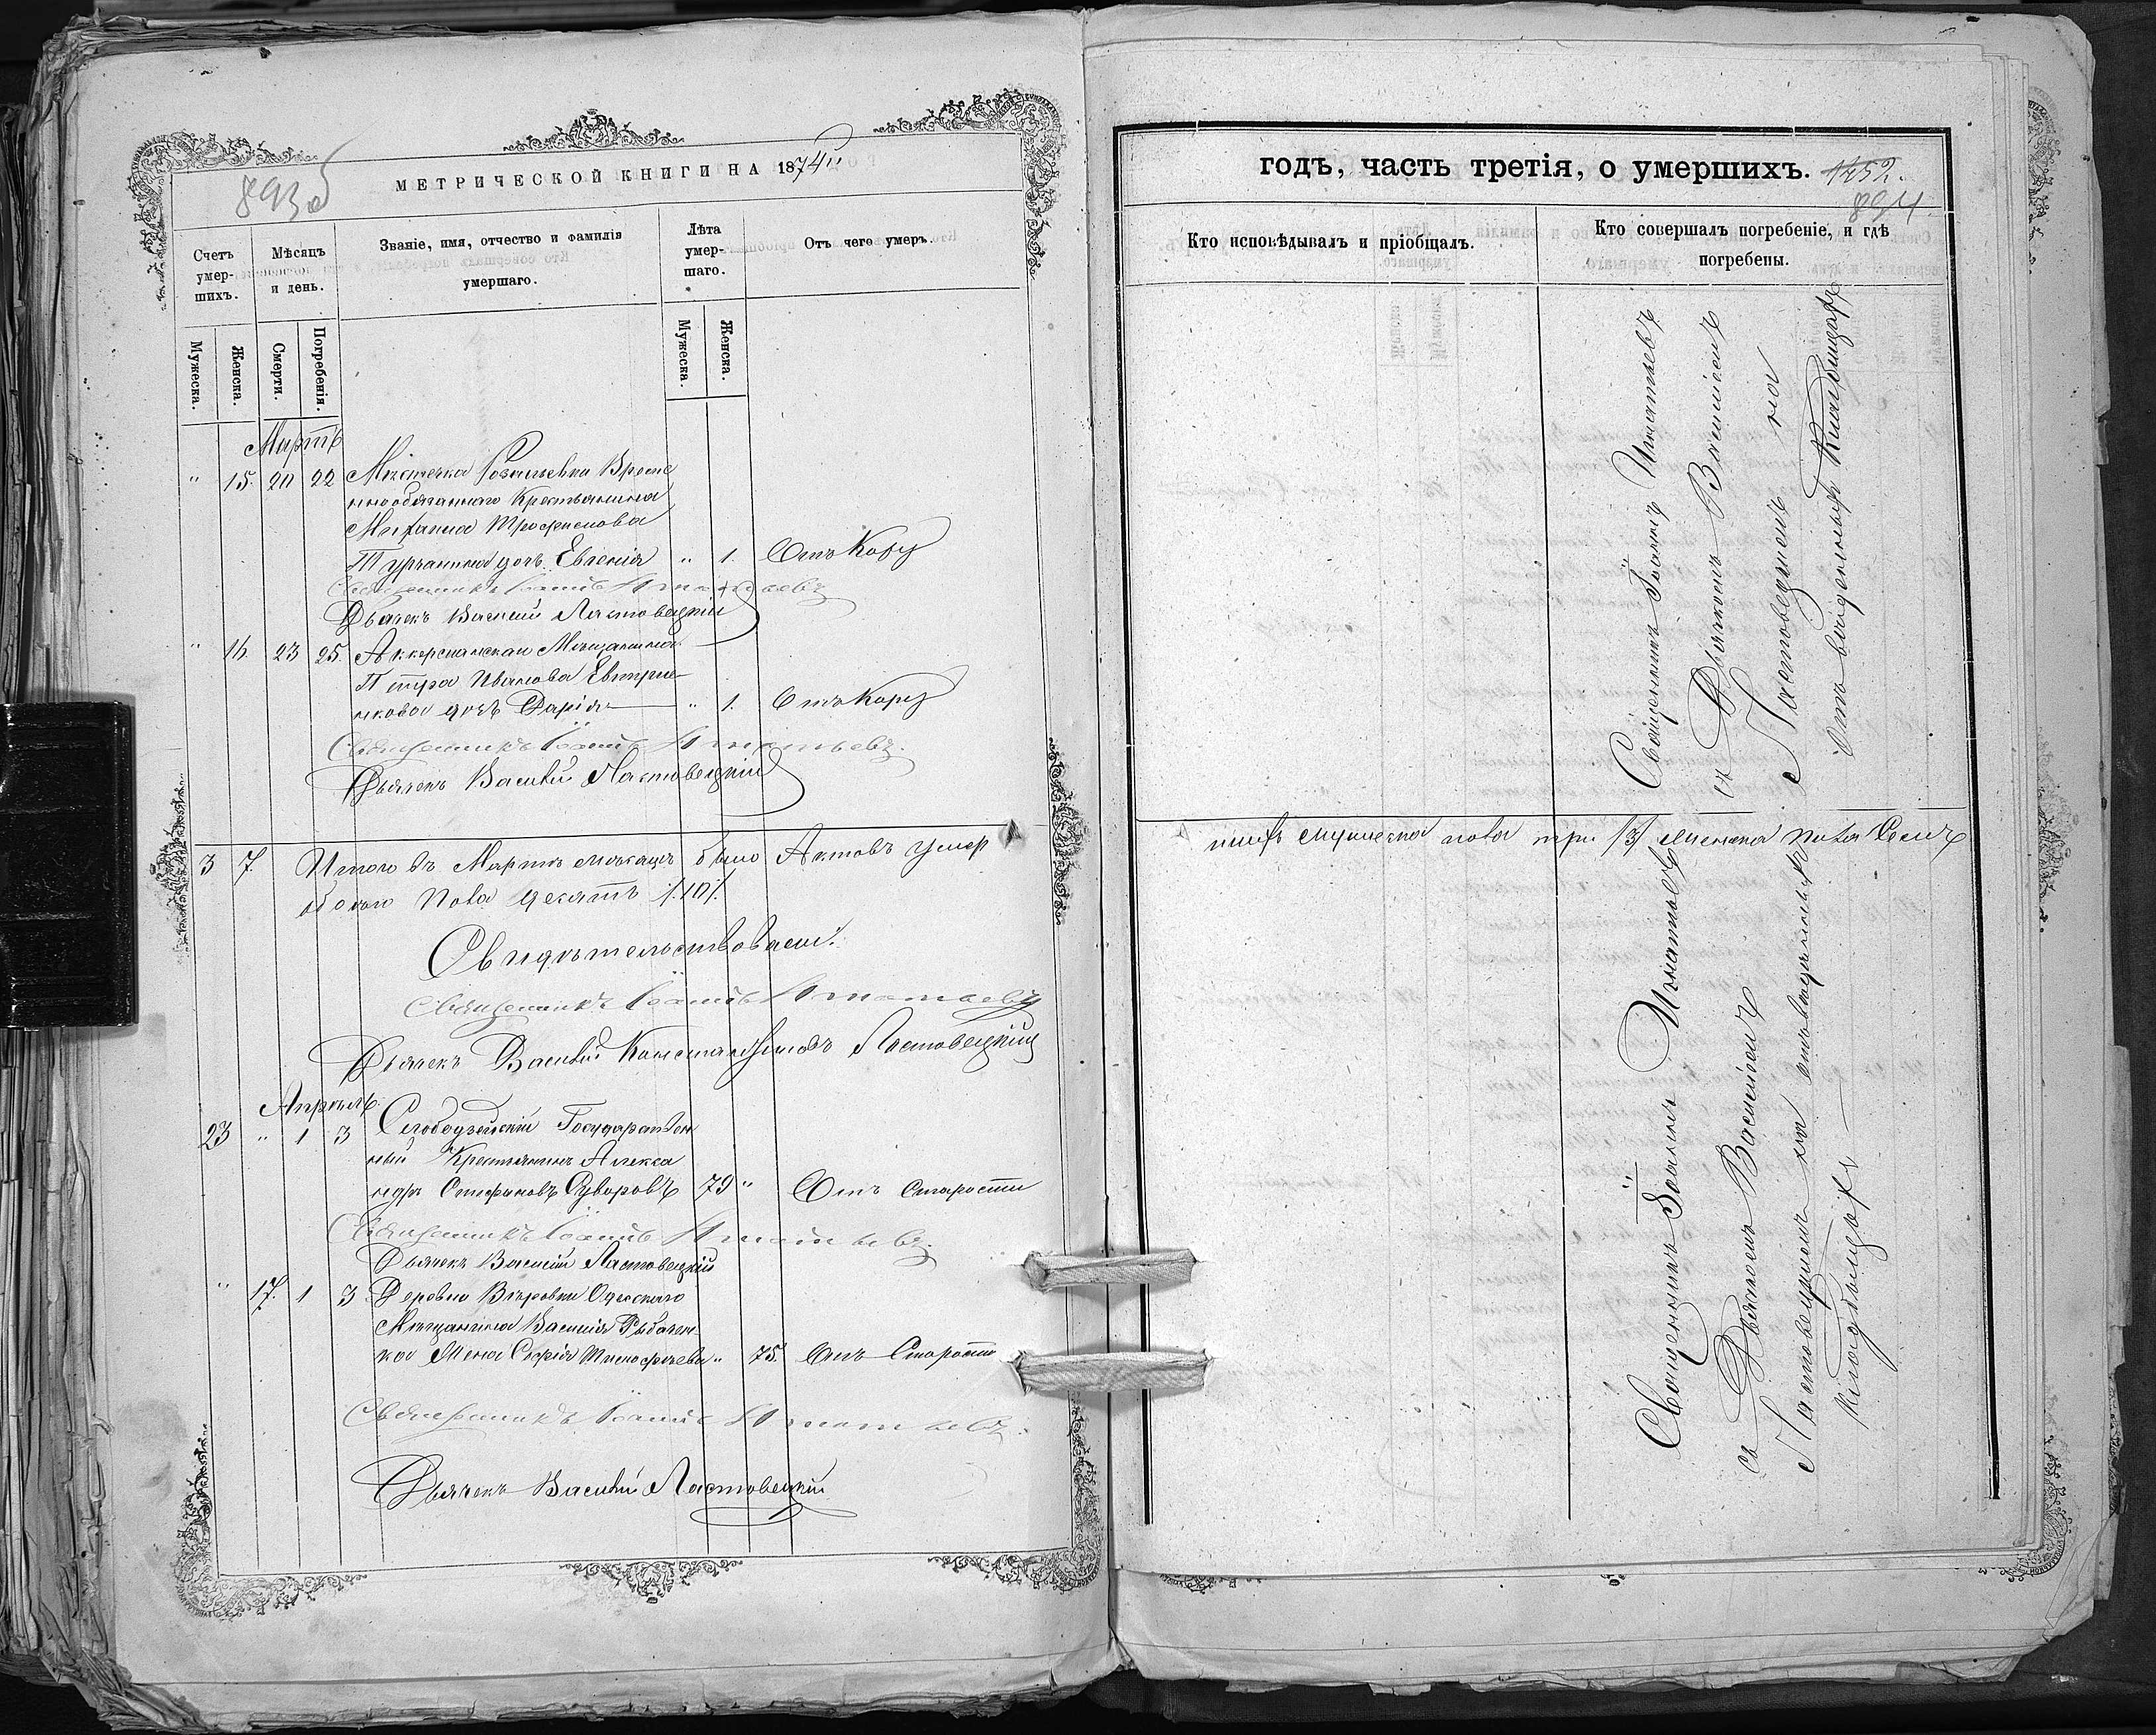 893об
МЕТРИЧЕСКОЙ КНИГИ НА 1874
Счетъ умер- шихъ.
Мѣсяцъ и день.
Званіе, имя, отчество и фамилія умершаго.
Лѣта умер- шаго.
Отъ чего умеръ.
Мужеска.
Женска.
Смерти.
Погребенія.
Мужеска.
Женска.
Мартъ
" 15. 20 22 Местечка Време
ннообязаннаго Крестьянина
Михаила Трофимова
дочь Евгенія " 1. Отъ Кору
Священникъ Іоаннъ Игнатьевъ
Дьячекъ Василій Ластовецкій
" 16. 23 25. Аккерманскаго Мещанина
Петра Иванова
дочь Дарія " 1. Отъ Кору
Священникъ Іоаннъ Игнатьевъ.
Дьячекъ Василій Ластовецкій
3 7. Итого въ Мартѣ мѣсяцѣ было Актовъ умер
обоего пола десять /.10/.
Свидѣтельствовали:
Священникъ Іоаннъ Игнатьевъ
Дьячекъ Василій Константиновъ Ластовецкій
Апрѣль
23 " 1 3 Слободзейскій Государствен
ный Крестьянинъ Алекса
ндръ Стефановъ Суворовъ 79 " Отъ Старости
Священникъ Іоаннъ Игнатьевъ.
Дьячекъ Василій Ластовецкій
" 17. 1 3 Деревни Одесскаго
Мѣщанина Василія Рыбачен
ка жена Софія Тимофеева " 75. Отъ Старости
Священникъ Іоаннъ Игнатьевъ.
Дьячекъ Василій Ластовецкій
годъ, часть третія, о умершихъ. 1452.
894.
Кто исповѣдывалъ и пріобщалъ.
Кто совершалъ погребеніе, и гдѣ погребены.
Священникъ Іоаннъ Игнатьевъ
съ Дьячкомъ Василіемъ
Ластовецкимъ на
отъ Кладбищахъ
шихъ мужеска пола три /3/ женска пола Семь
Священникъ Іоаннъ Игнатьевъ
съ Дьячкомъ Василіемъ
Ластовецкимъ на
кладбищахъ